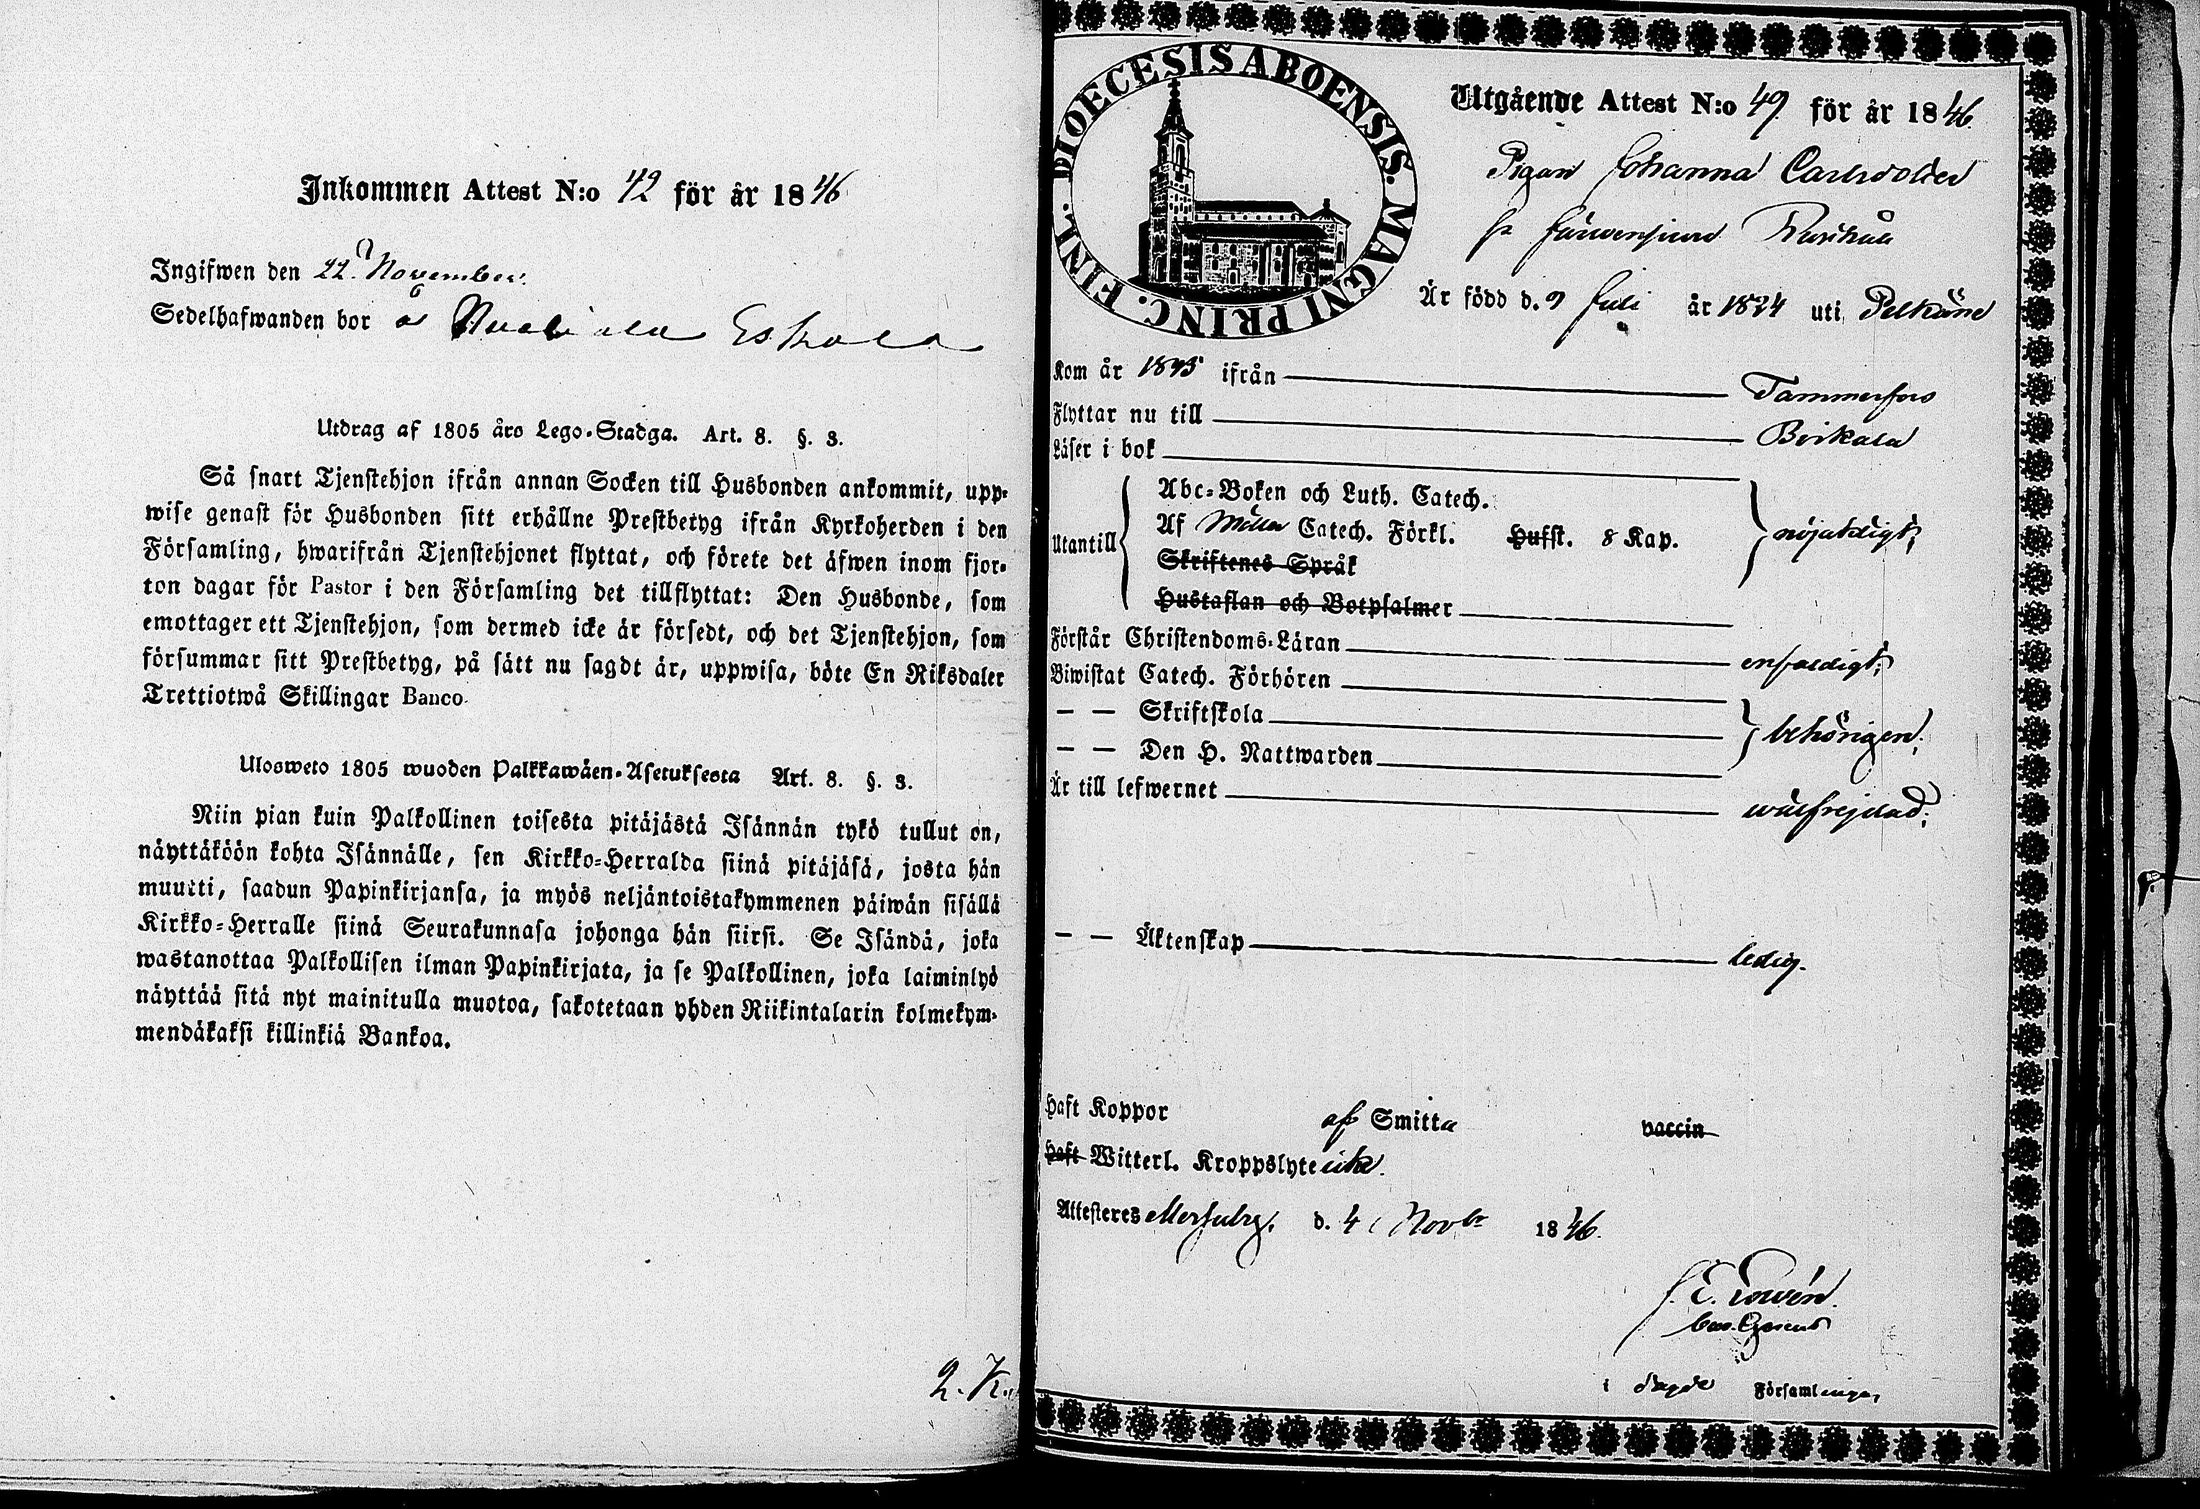 Inkommen Attest N:o 42 för år 1846
Ingifwen den 22 November.
Sedelhafwanden bor å Eskola
Utdrag af 1805 års Lego-Stadga. Art. 8. §. 3.
Så snart Tjenstehjon ifrån annan Socken till Husbonden ankommit, upp-
wise genast för Husbonden sitt erhållne Prestbetyg ifrån Kyrkoherden i den
Församling, hwarifrån Tjenstehjonet flyttat, och förete det äfwen inom fjor-
ton dagar för Pastor i den Församling det tillflyttat: Den Husbonde, som
emottager ett Tjenstehjon, som dermed icke är försedt, och det Tjenstehjon, som
försummar sitt Prestbetyg, på sätt nu sagdt är, uppwisa, böte En Riksdaler
Trettiotwå Skillingar Banco.
Ulosweto 1805 wuoden Palkkawäen-Asetuksesta Art. 8. §. 3.
Niin pian kuin Palkollinen toisesta pitäjästä Isännän tykö tullut on,
näyttäköön kohta Isännälle, sen Kirkko-Herralda siinä pitäjäsä, josta hän
muutti, saadun Papinkirjansa, ja myös neljäntoistakymmenen päiwän sisällä
Kirkko-Herralle siinä Seurakunnasa johonga hän siirsi. Se Isändä, joka
wastanottaa Palkollisen ilman Papinkirjata, ja se Palkollinen, joka laiminlyö
näyttää sitä nyt mainitulla muotoa, sakotetaan yhden Riikintalarin kolmekym-
mendäkaksi killinkiä Bankoa.
2. K.
DIOECESIS ABOENSIS. MAGNI PRINC. FINL.
Utgående Attest N:o 49 för år 1846.
Pigan Johanna Carlsdotter
fr Järwensivu
Är född d. 9 Juli år 1824 uti Pelkäne
Kom år 1845 ifrån Tammerfors
Flyttar nu till Birkala
Läser i bok
Utantill
Abc-Boken och Luth. Catech.
Af Möller Catech. Förkl. Hufst. 8 Kap. nöjaktigt;
Skriftenes Språk
Hustaflan och Botpsalmer
Förstår Christendoms-Läran enfaldigt;
Biwistat Catech. Förhören
— — Skriftskola behörigen;
— — Den H. Nattwarden
Är till lefwernet wälfrejdad;
— — Äktenskap ledig.
Haft Koppor af Smitta vaccin
Haft Witterl. Kroppslyte icke.
Attesteres Messuby, d. 4 Novbr 1846.
i sagde Församlingar